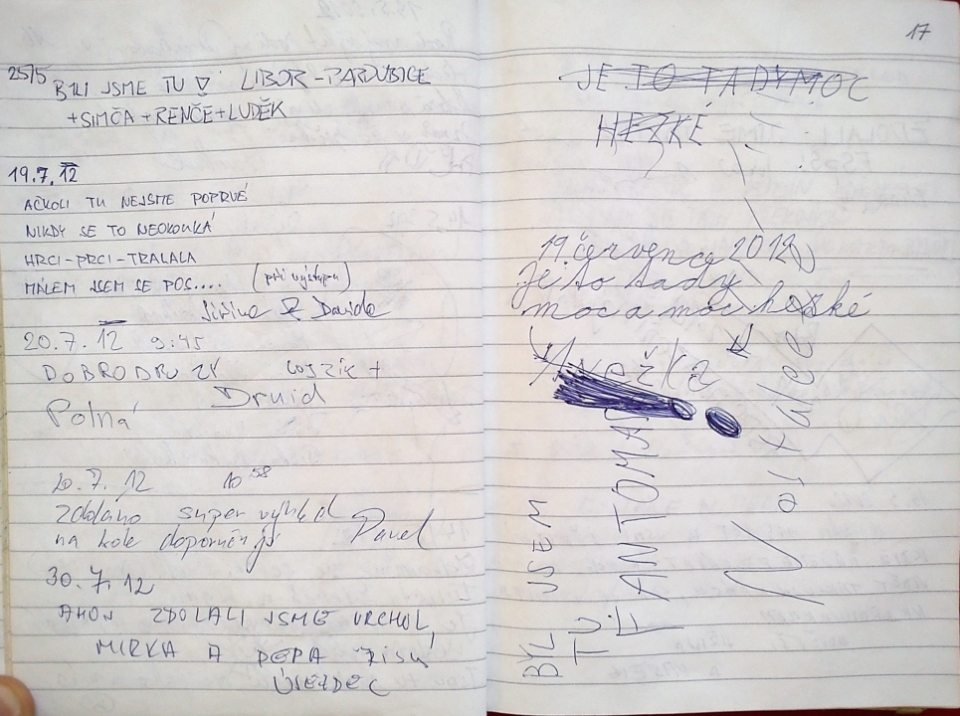 17
25/5 BYLI JSME TU V LIBOR-PARDUBICE
+SIMČA+RENČE+LUDĚK
19.7.12
AČKOLI TU NEJSME POPRVÉ
NIKDY SE TO NEOKOUKÁ
HRCI-PRCI-TRALALA
MÁLEM JSEM SE POS.... (při výstupu)
Jiřina & Davida
20.7.12 9:45
DOBRODRUZI
Druid
Polná
20.7.12 10 58
zdoláno super výhled
na kole
Pavel
30.7.12
AHOJ ZDOLALI JSME VRCHOL,
MIRKA A PEPA
ÚJEZDEC
JE TO TADY MOC
HEZKÉ
19. července 2012
Je to tady
moc a moc hezké
Anežka
BYL JSEM
TU
FANTOMAS